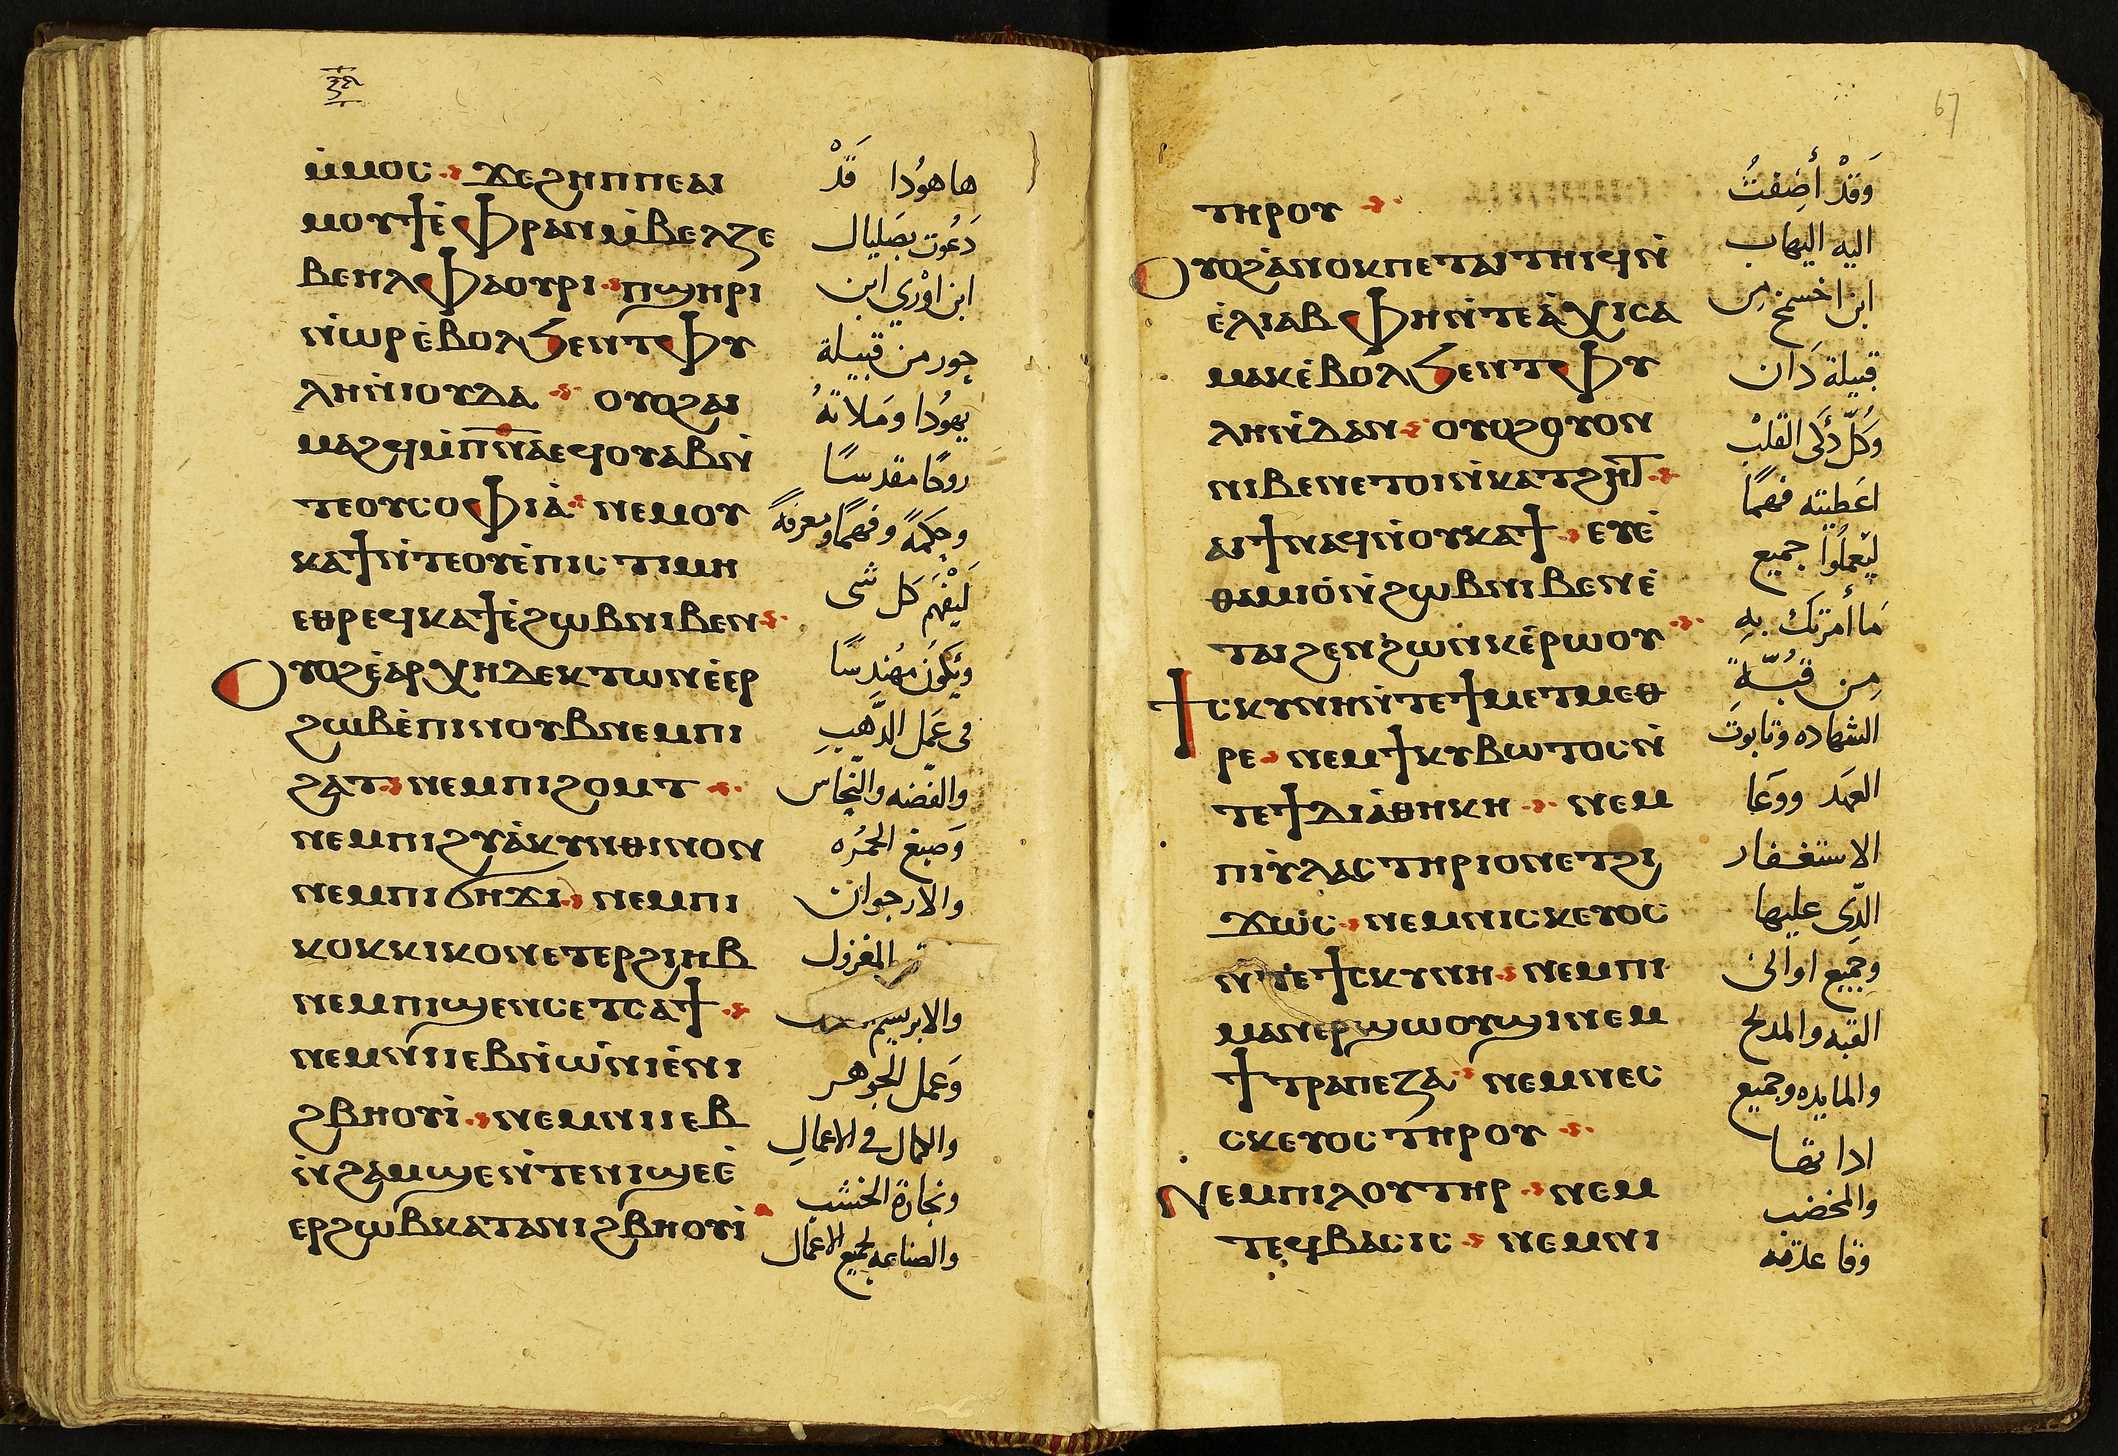 ⲙ̀ⲙⲟⲥ ϫⲉϩⲏⲡⲡⲉⲁⲓ
ⲙⲟⲩϯⲉ̀ⲫⲣⲁⲛⲙ̀ⲃⲉⲗⲍⲉ
ⲃⲉⲏⲗⲫⲁⲟⲩⲣⲓ ⲡϣⲏⲣⲓ
ⲛ̀ⲱⲣⲉ̀ⲃⲟⲗϧⲉⲛⲧⲫⲩ
ⲗⲏⲛ̀ⲓⲟⲩⲇⲁ ⲟⲩⲟϩⲁⲓ
ⲙⲁϩϥⲙ̀ⲡ̅ⲛ̅ⲁⲉϥⲟⲩⲁⲃⲛ̀
ⲧⲉⲟⲩⲥⲟⲫⲓⲁ̀ ⲛⲉⲙⲟⲩ
ⲕⲁϯⲛ̀ⲧⲉⲟⲩⲉ̀ⲡⲓⲥⲧⲓⲙⲏ
ⲉⲑⲣⲉϥⲕⲁϯⲉ̀ϩⲱⲃⲛⲓⲃⲉⲛ
ⲟⲩⲟϩⲉ̀ⲁⲣⲭⲏⲇⲉⲕⲧⲱⲛⲉ̀ⲉⲣ
ϩⲱⲃⲉ̀ⲡⲓⲛⲟⲩⲃⲛⲉⲙⲡⲓ
ϩⲁⲧ ⲛⲉⲙⲡⲓϩⲟⲙⲧ
ⲛⲉⲙⲡⲓϩⲩⲁ̀ⲕⲩⲛⲑⲓⲛⲟⲛ
ⲛⲉⲙⲡⲓϭⲏϫⲓ ⲛⲉⲙⲡⲓ
ⲕⲟⲕⲕⲓⲕⲟⲛⲉⲧⲉⲣϩⲓⲏⲃ
ⲛⲉⲙⲡⲓϣⲉⲛⲥⲉⲧⲥⲁϯ
ⲛⲉⲙⲛⲓⲓⲉⲃⲛ̀ⲱ̀ⲛⲓⲉ̀ⲛⲓ
ϩⲃⲏⲟⲩⲓ̀ ⲛⲉⲙⲛⲓⲓⲉⲃ
ⲛ̀ϩⲁⲙϣⲉⲛ̀ⲧⲉⲛⲓϣⲉⲉ̀
ⲉⲣϩⲱⲃⲕⲁⲧⲁⲛⲓϩⲃⲏⲟⲩⲓ̀
هاهوُدا قَدْ
دَعُوت بصَليال
ابن اوْري ابن
حور من قبيلة
يهوُدا وملاتهُ
روحًا مقدسًا
وحِكمَةً وفهمًا ومعرفةً
لَيَفْهَم كل شى
وَيكونَ مهُندسًا
فى عَمَل الذَّهبِ
والفضه والنّحاس
وَصبغ الحمُره
والارجوان
المغزول
والابريسم
وَعمل الجوهر
والكمال في الاعمالِ
ونجارة الخشب
والصناعه لجميع الاعمال
67
ⲧⲏⲣⲟⲩ
ⲟⲩⲟϩⲁ̀ⲛⲟⲕⲡⲉⲧⲁⲓⲧⲏⲓϥⲛ̀
ⲉ̀ⲗⲓⲁⲃ ⲫⲏⲛ̀ⲧⲉⲁ̀ⲭⲓⲥⲁ
ⲙⲁⲕⲉ̀ⲃⲟⲗϧⲉⲛⲧⲫⲩ
ⲗⲏⲛ̀ⲇⲁⲛ ⲟⲩⲟϩⲟⲩⲟⲛ
ⲛⲓⲃⲉⲛⲉⲧⲟⲓⲛ̀ⲕⲁⲧϩⲏⲧ
ⲁⲓϯⲛⲁϥⲛ̀ⲟⲩⲕⲁϯ ⲉⲩⲉ̀
ⲑⲁⲙⲓⲟ̀ⲛ̀ϩⲱⲃⲛⲓⲃⲉⲛⲉ̀
ⲧⲁⲓϩⲉⲛϩⲱⲛ̀ⲕⲉ̀ⲣⲱⲟⲩ
ϯⲥⲕⲩⲛⲏⲛ̀ⲧⲉϯⲙⲉⲧⲙⲉⲑ
ⲣⲉ ⲛⲉⲙϯⲕⲩⲃⲱⲧⲟⲥⲛ̀
ⲧⲉϯⲇⲓⲁ̀ⲑⲏⲕⲏ ⲛⲉⲙ
ⲡⲓⲩ̀ⲗⲁⲥⲧⲏⲣⲓⲟⲛⲉⲧϩⲓ
ϫⲱⲥ ⲛⲉⲙⲛⲓⲥⲕⲉⲩⲟⲥ
ⲛ̀ⲧⲉϯⲥⲕⲩⲛⲏ ⲛⲉⲙⲡⲓ
ⲙⲁⲛⲉⲣϣⲱⲟⲩϣⲓⲛⲉⲙ
ϯⲧⲣⲁⲡⲉⲍⲁ ⲛⲉⲙⲛⲉⲥ
ⲥⲕⲉⲩⲟⲥⲧⲏⲣⲟⲩ
ⲛⲉⲙⲡⲓⲗⲟⲩⲧⲏⲣ ⲛⲉⲙ
ⲧⲉϥⲃⲁⲥⲓⲥ ⲛⲉⲙⲛⲓ
وَقَدْ أضِفتُ
اليه اليهاب
ابن اخسمخ مِن
قبيلة دَان
وَكُلّ ذَكى القلبْ
اعَطيته فهمًا
ليَعملُوا جميع
مَا أمرتك بهِ
مِن قبُّةِ
الشهاده وتابوت
العَهَد ووَعَا
الاستغفار
الذّى عليها
وجميع اوانى
القبه والمدبح
والمايده وجميع
اداتها
والمخضب